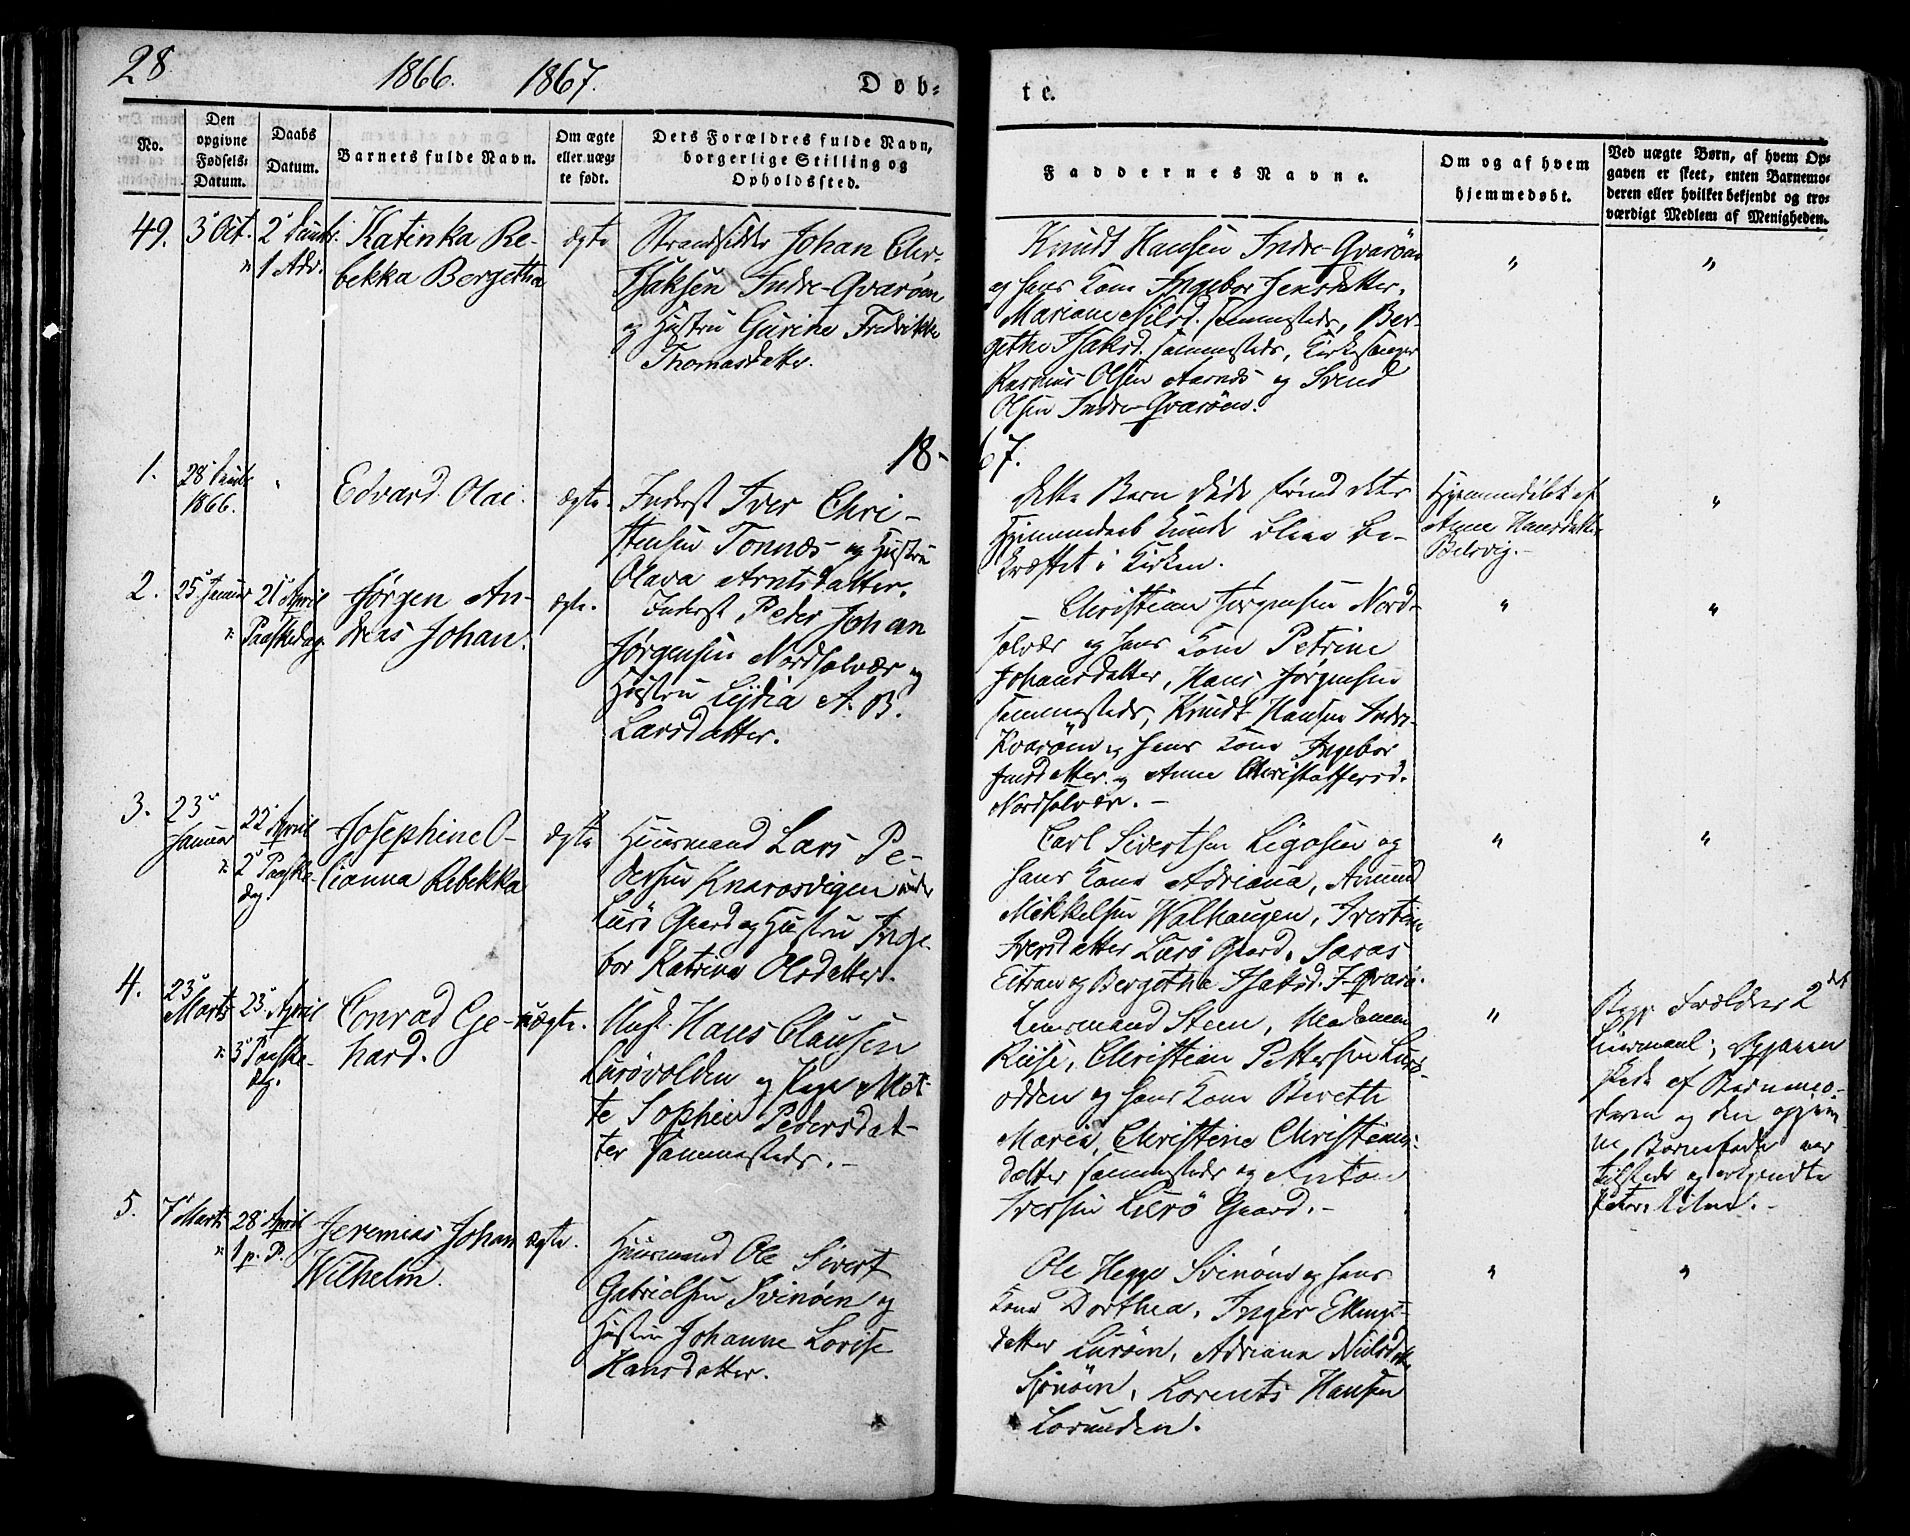 28.
1866. 1867.
Døb-
te.
No.
Den opgivne Fødsels-Datum.
Daabs Datum.
Barnets fulde Navn.
Om ægte eller uæg-te født.
Dets Forældres fulde Navn, borgerlige Stilling og Opholdssted.
Faddernes Navne.
Om og af hvem hjemmedøbt.
Ved uægte Børn, af hvem Op-gaven er skeet, enten Barnemo-deren eller hvilket bekjendt og tro-værdigt Medlem af Menigheden.
49.
3 Oct.
2
1 Adv.
Katinka Re-
bekka Bergetha
ægte
Strandsidder Johan Chr.
Isaksen Indre-Qvarøen
og Hustru Gurine Fredrikke
Thomasdatter.
Knudt Hansen Indre-Qvarøen
og hans Kone Ingebor Jensdatter,
Mariane Nilsd. sammesteds, Ber-
gethe Isaksd. sammesteds, Kirkesanger
Rasmus Olsen Aarnes og Svend
Olsen Indre-Qvarøen.
"
"
18-
67.
1.
28
1866.
"
Edvard Olai.
ægte.
Inderst Iver Chri-
stensen Tonnes og Hustru
Olava Arntsdatter.
Dette Barn døde førend dets
Hjemmedaab kunde blive be-
kræftet i Kirken.
Hjemmedøbt af
Anne Hansdatter
"
2.
25 Januar
21 April
Paaskedag.
Jørgen An-
dreas Johan.
ægte.
Inderst Peder Johan
Jørgensen Nordsolvær og
Hustru Lydia A. B.
Larsdatter.
Christian Jørgensen Nord-
solvær og hans Kone Petrine
Johansdatter, Hans Jørgensen
sammesteds, Knudt Hansen Indre-
Kvarøen og hans Kone Ingebor
Jensdatter og Anne Christoffersd.
Nordsolvær. -
"
"
3.
23
Januar
22 April
2 Paaske-
dag.
Josephine O-
lianna Rebekka
ægte
Huusmand Lars Pe-
dersen Knarosvigen under
Lurø Gaard og Hustru Inge-
bor Katrina Olsdatter.
Carl Sivertsen Ligosen og
hans Kone Adriana, Amund
Mikkelsen Walhaugen, Ivertine
Iversdatter Lurø Gaard,
Eitran og Bergetha Isaksd.
"
"
4.
23
Marts
23 April
3 Paaske-
dg.
Conrad Ge-
hard.
uægte.
Hans Clausen
Lurøvolden og Pige Met-
te Sophie Pedersdat-
ter sammesteds. -
Lensmand Steen, Madamen
Riise, Christian Pettersen Lurø-
odden og hans Kone Berethe
Maria, Christine Christians-
datter sammesteds og Anton
Iversen Lurø Gaard. -
"
Forældres 2det
Leiermaal;
skede af Barnemo-
deren og den opgiv-
ne Barnefader var
tilstede og erkjendte
5.
7 Marts
28 April
1 p. P.
Jeremias Johan
Wilhelm.
ægte.
Huusmand Ole Sivert
Gabrielsen Svinøen og
Hustru Johanne Lovise
Hansdatter.
Ole Hegge Svinøen og hans
Kone Dorthea, Inger Ellings-
datter Lurøen, Adriane Nielsdatt.
Svinøen, Lorents Hansen
Lovunden.
"
"